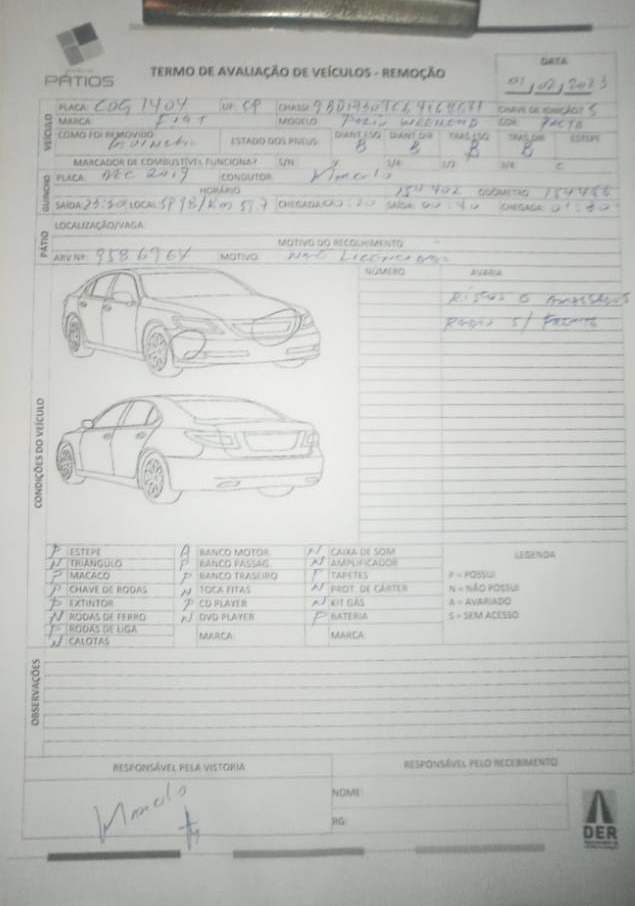 PÁTIOS
TERMO DE AVALIAÇÃO DE VEÍCULOS - REMOÇÃO
DATA
01/02/2023
VEÍCULO
PLACA: COG 1404 UF: SP CHASSI: CHAVE DE IGNIÇÃO? S
MARCA: FIAT MODELO: WEEKEND COR:
COMO FOI REMOVIDO ESTADO DOS PNEUS: DIANT ESQ B DIANT DIR B TRAS ESQ B TRAS DIR B ESTEPE
MARCADOR DE COMBUSTÍVEL FUNCIONA? S/N 1/4 1/2 3/4 C
GUINCHO
PLACA: 2019 CONDUTOR: Marcelo
HORÁRIO ODÔMETRO
SAÍDA: 23:50 LOCAL: SP 98/Km 59.7 CHEGADA: 00:20 SAÍDA: 00:40 CHEGADA: 01:30
PÁTIO
LOCALIZAÇÃO/VAGA:
MOTIVO DO RECOLHIMENTO
ARV Nº: 9586964 MOTIVO: NÃO LICENCIADO
CONDIÇÕES DO VEÍCULO
NÚMERO AVARIA
RISCOS E AMASSADOS
RADIO S/ FRENTE
P ESTEPE A BANCO MOTOR. N CAIXA DE SOM LEGENDA
N TRIÂNGULO P BANCO PASSAG. N AMPLIFICADOR
P MACACO P BANCO TRASEIRO P TAPETES P = POSSUI
P CHAVE DE RODAS N TOCA FITAS N PROT. DE CÁRTER N = NÃO POSSUI
P EXTINTOR P CD PLAYER N KIT GÁS A = AVARIADO
N RODAS DE FERRO N DVD PLAYER P BATERIA S = SEM ACESSO
P RODAS DE LIGA MARCA: MARCA:
N CALOTAS
OBSERVAÇÕES
RESPONSÁVEL PELA VISTORIA RESPONSÁVEL PELO RECEBIMENTO
Marcelo
NOME:
RG:
DER